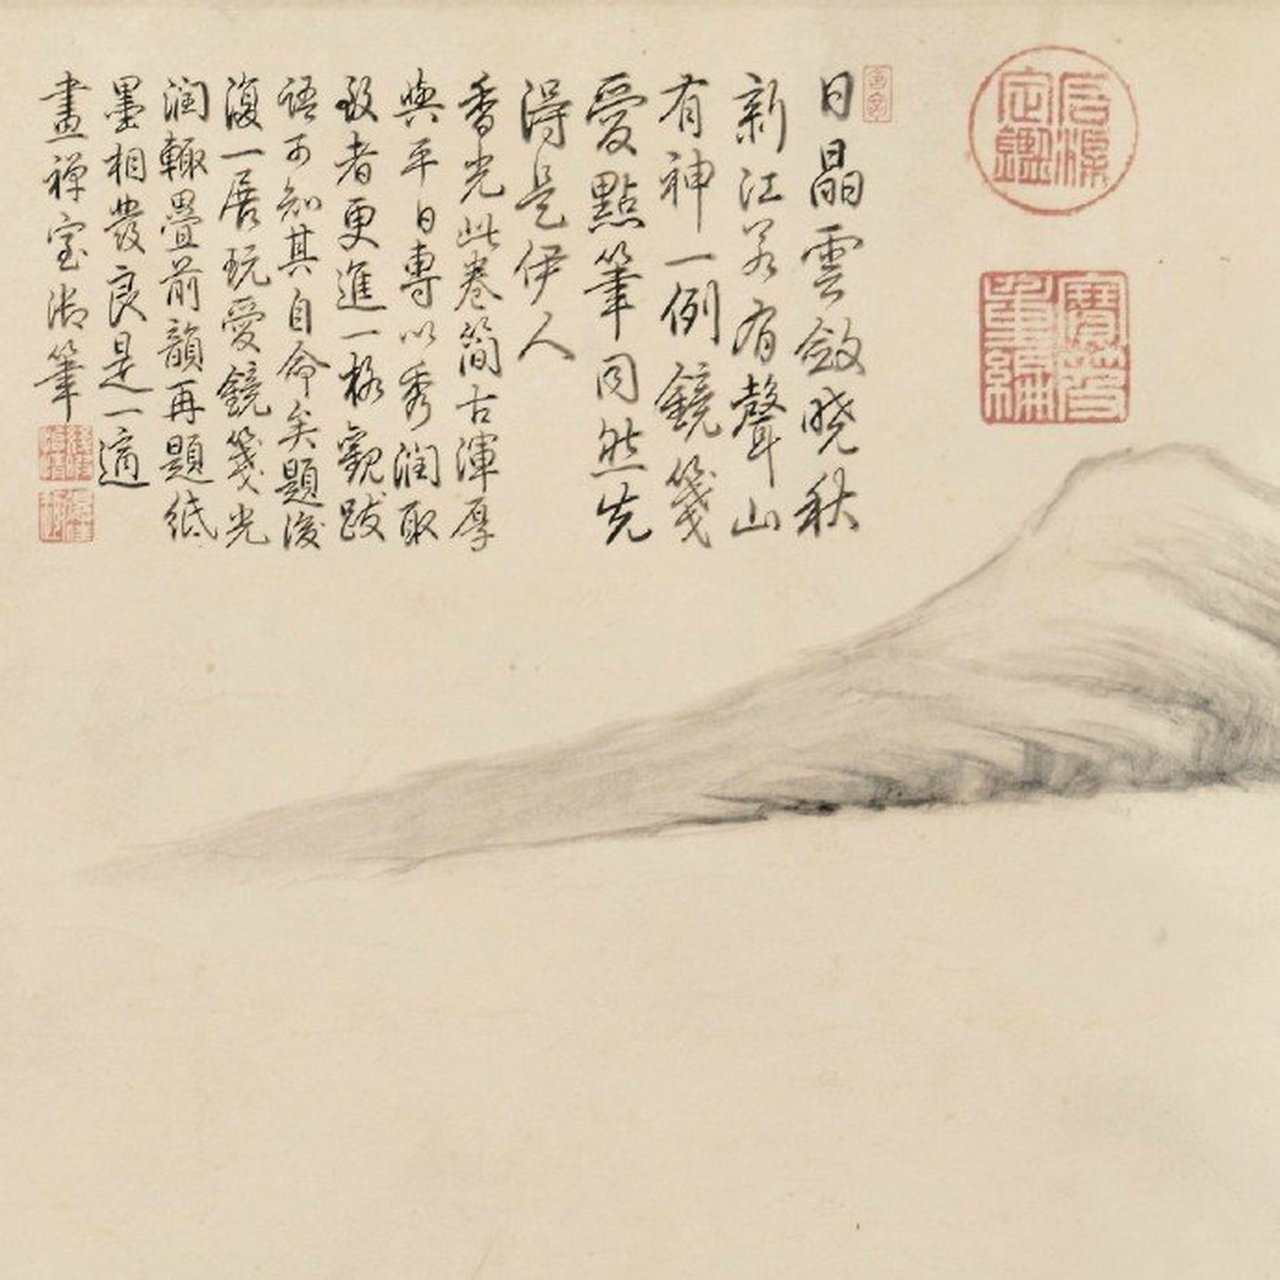 日晶雲斂曉秋
新江若有聲山
有神一例鏡箋
愛點筆同然先
得是伊人
香光此卷簡古渾厚
與平日專以秀潤取
致者更進一格觀跋
語可知其自命矣題後
復一展玩愛鏡箋光
潤輙疊前韻再題紙
墨相發良是一適
畫禪室御筆
石渠定鑑
寶笈重編